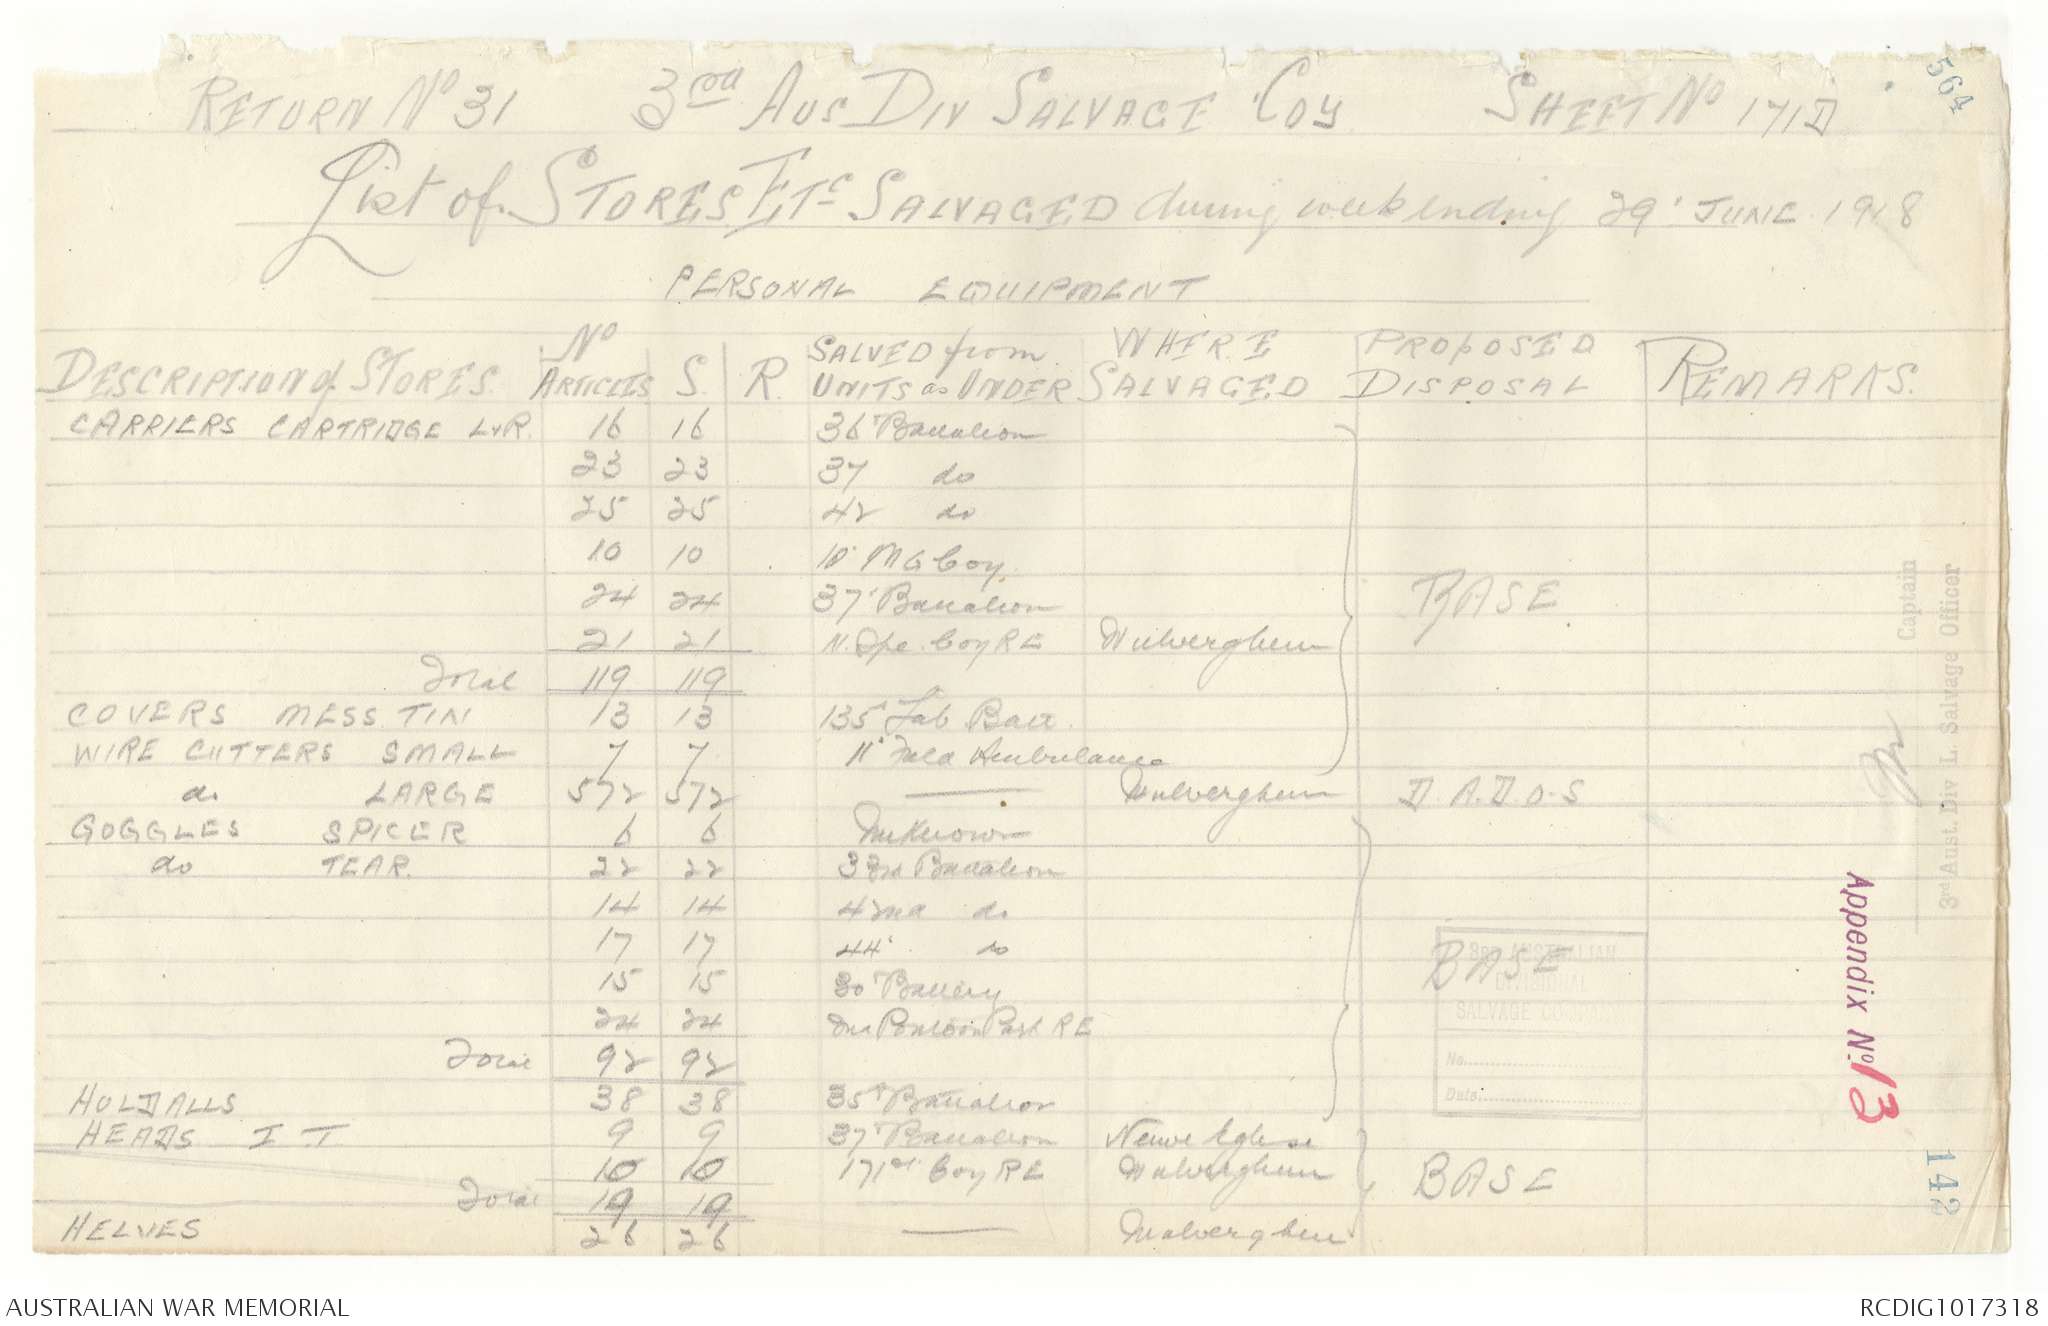 RETURN No 31 3rd AUS DIV SALVAGE COY SHEET No 171D
564
List of STORES ETc SALVAGED during week ending 29' JUNE 1918
PERSONAL EQUIPMENT
DESCRIPTION of STORES. No ARTICLES S. R. SALVED from UNITS as UNDER WHERE SALVAGED PROPOSED DISPOSAL REMARKS.
CARRIERS CARTRIDGE L&R. 16 16 36' Battalion
23 23 37 do
25 25 42 do
10 10 10' MG Coy.
24 24 37' Battalion BASE
21 21 Coy RE Wulverghem
Total 119 119
COVERS MESS TIN 13 13 135' Batt.
WIRE CUTTERS SMALL 7 7 11' Field Ambulance
do LARGE 572 572 — Wulverghem D.A.D.O.S
GOGGLES SPICER 6 6 Unknown
do TEAR. 22 22 33rd Battalion
14 14 42nd do
17 17 44' do
15 15 30' Battery BASE
24 24 Pontoon Park RE
Total 92 92
HOLDALLS 38 38 35' Battalion
HEADS I T 9 9 37' Battalion Neuve Eglise
10 10 171st Coy RE Wulverghem BASE
Total 19 19
HELVES 26 26 — Wulverghem
3RD AUSTRALIAN
DIVISIONAL
SALVAGE COMPANY
No.
Date:
Captain
3rd Aust. Div L. Salvage Officer
Appendix No. 13
142
AUSTRALIAN WAR MEMORIAL RCDIG1017318